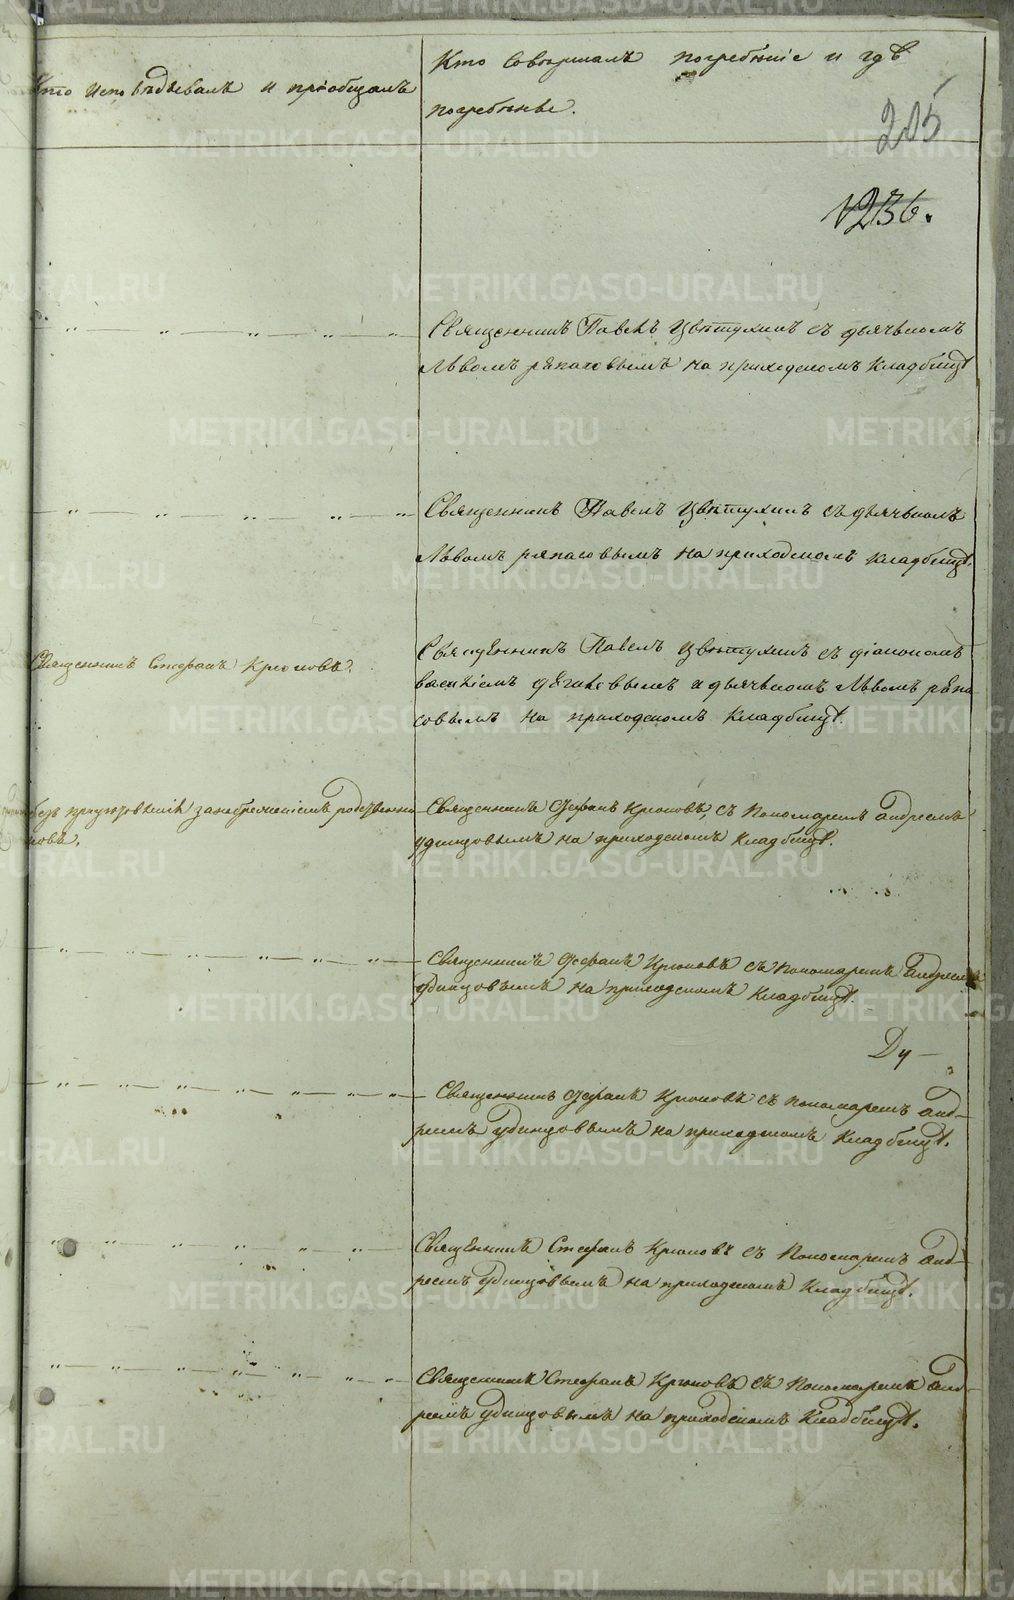 Кто исповѣдывалъ и пріобщалъ
Кто совершалъ погребѣніе и гдѣ
погребѣны.
205
1236.
Священникъ Павелъ Цвѣтухинъ съ дьячькомъ
Львомъ рѣпасовымъ на приходскомъ Кладбищѣ
Священникъ Павелъ Цвѣтухинъ съ дьячькомъ
Львомъ рѣпасовымъ на приходскомъ кладбищѣ.
Священникъ Стефанъ Крюковъ.
Священникъ Павелъ Цвѣтухинъ съ діакономъ
василіемъ и дьячькомъ Львомъ рѣпа-
совымъ на приходскомъ Кладбищѣ.
безъ занебреженіемъ родственни
ковъ.
Священникъ Стефанъ Крюковъ, съ Пономаремъ Андреемъ
удинцовымъ на приходскомъ Кладбищѣ.
Священникъ Стефанъ Крюковъ съ Пономаремъ Андреемъ
удинцовымъ на приходскомъ Кладбищѣ.
Ду—
Священникъ Стефанъ Крюковъ съ Пономаремъ Анд-
реемъ удинцовымъ на приходскомъ Кладбищѣ.
Священникъ Стефанъ Крюковъ съ Пономаремъ Анд-
реемъ удинцовымъ на приходскомъ Кладбищѣ.
Священникъ Стефанъ Крюковъ съ Пономаремъ Анд-
реемъ удинцовымъ на приходскомъ Кладбищѣ.
METRIKI.GASO-URAL.RU